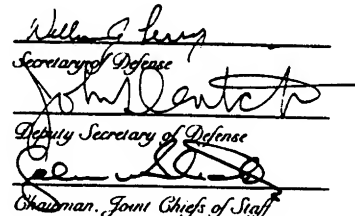 William J. Perry
Secretary of Defense
John Deutch
Deputy Secretary of Defense
Chairman, Joint Chiefs of Staff